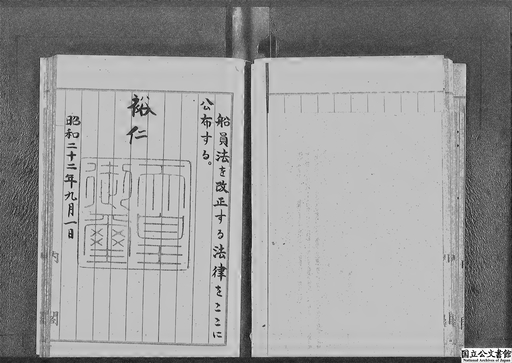 船員法を改正する法律をここに
公布する。
裕仁
天皇
御璽
昭和二十二年九月一日
内閣
国立公文書館
National Archives of Japan